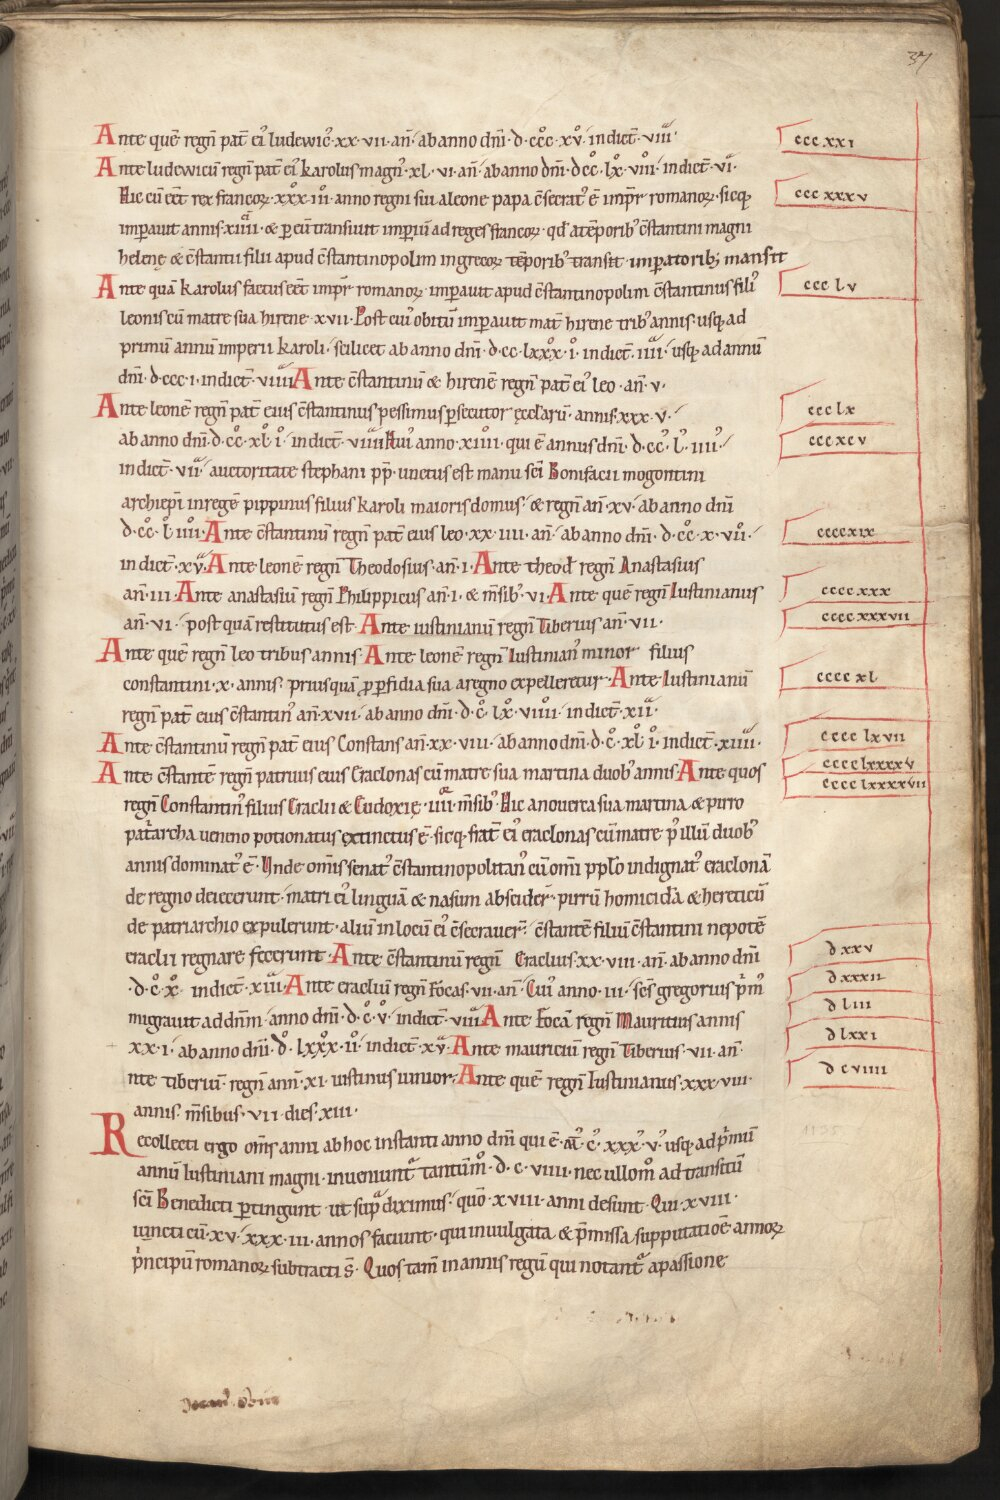 37
Ante quē regn̄ pat̄ ei᾽ ludewic᾽ ·xx·vii· an̄· ab anno dn̄i ·d·ccc᾽·xv᾽· indict̄ viii· cccxxi
Ante ludewicū regn̄ pat̄ ei᾽ karolus magn᾽ ·xl·vi· an̄· ab anno dn̄i ·dcc᾽·lx᾽·viii᾽· indict̄·vi·
Hic cū eēt rex francoꝝ ·xxx᾽·iii᾽· anno regni sui aleone papa c̄secrat᾽ ē imp̄r romanoꝝ· sicqꝫ cccxxxv
imꝑauit annis·xiiii· & ꝑ eū transiuit imperiū ad reges francoꝝ· qd̄ a tēporib᾽ c̄stantini magni
helenę & c̄stantii filii apud c̄stantinopolim in grecoꝝ tēporib᾽ transiit· imꝑatoribꝫ mansit
Ante quā karolus factus eēt imp̄r romanoꝝ· imꝑauit apud c̄stantinopolim c̄stantinus fili᾽ ccclv
leonis cū matre sua hirene·xvii· Post cui᾽ obitū imꝑauit mat̄ hirene trib᾽ annis· usqꝫ ad
primū annū imperii karoli· scilicet ab anno dn̄i ·d·cc·lxxx᾽·i᾽· indict̄·iiii· usqꝫ ad annū
dn̄i ·d·ccc·i· indict̄·viiii· Ante c̄stantinū & hirenē regn̄ pat̄ ei᾽ leo·an̄·v·
Ante leonē regn̄ pat̄ eius c̄stantinus pessimus ꝑsecutor ęcclarū· annis·xxx·v· ccclx
ab anno dn̄i ·d·cc᾽·xl᾽·i᾽· indict̄·viiii· Hui᾽ anno·xiiii· qui ē annus dn̄i ·d·cc᾽·l᾽·iiii᾽· cccxcv
indict̄·vii· auctoritate stephani pp̄· unctus est manu sc̄i Bonifacii mogontini
archiep̄i in regē pippinus filius karoli maioris domus· & regn̄ an̄·xv· ab anno dn̄i
d·cc᾽·l᾽·iiii᾽· Ante c̄stantinū regn̄ pat̄ eius leo·xx·iiii·an̄· ab anno dn̄i ·d·cc᾽·x·vii᾽· ccccxix
indict̄·xv· Ante leonē regn̄ Theodosius·an̄·i· Ante theod̄ regn̄ Anastasius
an̄·iii· Ante anastasiū regn̄ Philippicus an̄·i· & m̄sib᾽·vi· Ante quē regn̄ Iustinianus ccccxxx
an̄·vi· post quā restitutus est· Ante iustinianū regn̄ Tiberius an̄·vii· ccccxxxvii
Ante quē regn̄ leo tribus annis· Ante leonē regn̄ Iustinian᾽ minor filius
constantini·x·annis· priusquā ꝓ ꝑfidia sua a regno expelleretur· Ante Iustinianū ccccxl
regn̄ pat̄ eius c̄stantin᾽ an̄·xvii· ab anno dn̄i ·d·c᾽·lx᾽·viiii᾽· indict̄·xii·
Ante c̄stantinū regn̄ pat̄ eius Constans an̄·xx·viii· ab anno dn̄i ·d·c᾽·xl᾽·i᾽· indict̄·xiiii· cccclxvii
Ante c̄stantē regn̄ patruus eius Eraclonas cū matre sua martina duob᾽ annis· Ante quos cccclxxxxv
regn̄ Constantin᾽ filius Eraclii & Eudoxię·iiii·m̄sib᾽· Hic a nouerca sua martina & pirro cccclxxxxvii
pat̄archa ueneno potionatus extinctus ē· sicqꝫ frat̄ ei᾽ eraclonas cū matre p᾽ illū duob᾽
annis dominat᾽ ē· Unde om̄is senat᾽ c̄stantinopolitan᾽ cū om̄i pp̄lo indignat᾽ eraclonā
de regno deiecerunt· matri ei᾽ linguā & nasum abscider̄· pirrū homicidā & hereticū
de patriarchio expulerunt· aliū in locū ei᾽ c̄secrauer̄· c̄stantē filiū c̄stantini nepotē
eraclii regnare fecerunt· Ante c̄stantinū regn̄ Eraclius·xx·viii·an̄· ab anno dn̄i dxxv
·d·c᾽·x᾽· indict̄·xiii· Ante eracliū regn̄ Focas·vii·an̄· Cui᾽ anno·iii· sc̄s gregorius p̄m᾽ dxxxii
migrauit ad dn̄m· anno dn̄i ·d·c᾽·v᾽· indict̄·viii· Ante Focā regn̄ Mauritius annis dliii
xx·i· ab anno dn̄i ·d᾽·lxxx᾽·ii᾽· indict̄·xv· Ante mauriciū regn̄ Tiberius·vii·an̄· dlxxi
nte tiberiū regn̄ ann̄·xi· iustinus iunior· Ante quē regn̄ Iustinianus·xxx·viii· dcviiii
annis· m̄sibus·vii·dies·xiii·
Recollecti ergo om̄s anni ab hoc instanti anno dn̄i qui ē·m᾽·c᾽·xxx᾽·v᾽· usqꝫ ad p̄mū
annū Iustiniani magni· inueniunt̄ tantūm᾽·d·c·viiii· nec ullom᾽ ad transitū
sc̄i Benedicti ꝑtingunt· ut sup̄ diximus· quō·xviii·anni desunt· Qui·xviii·
iuncti cū·xv·xxx·iii·annos faciunt· qui in uulgata & p̄missa supputatiōe annoꝝ
p̄ncipū romanoꝝ subtracti s̄· Quos tam̄ in annis regū qui notant̄ a passione